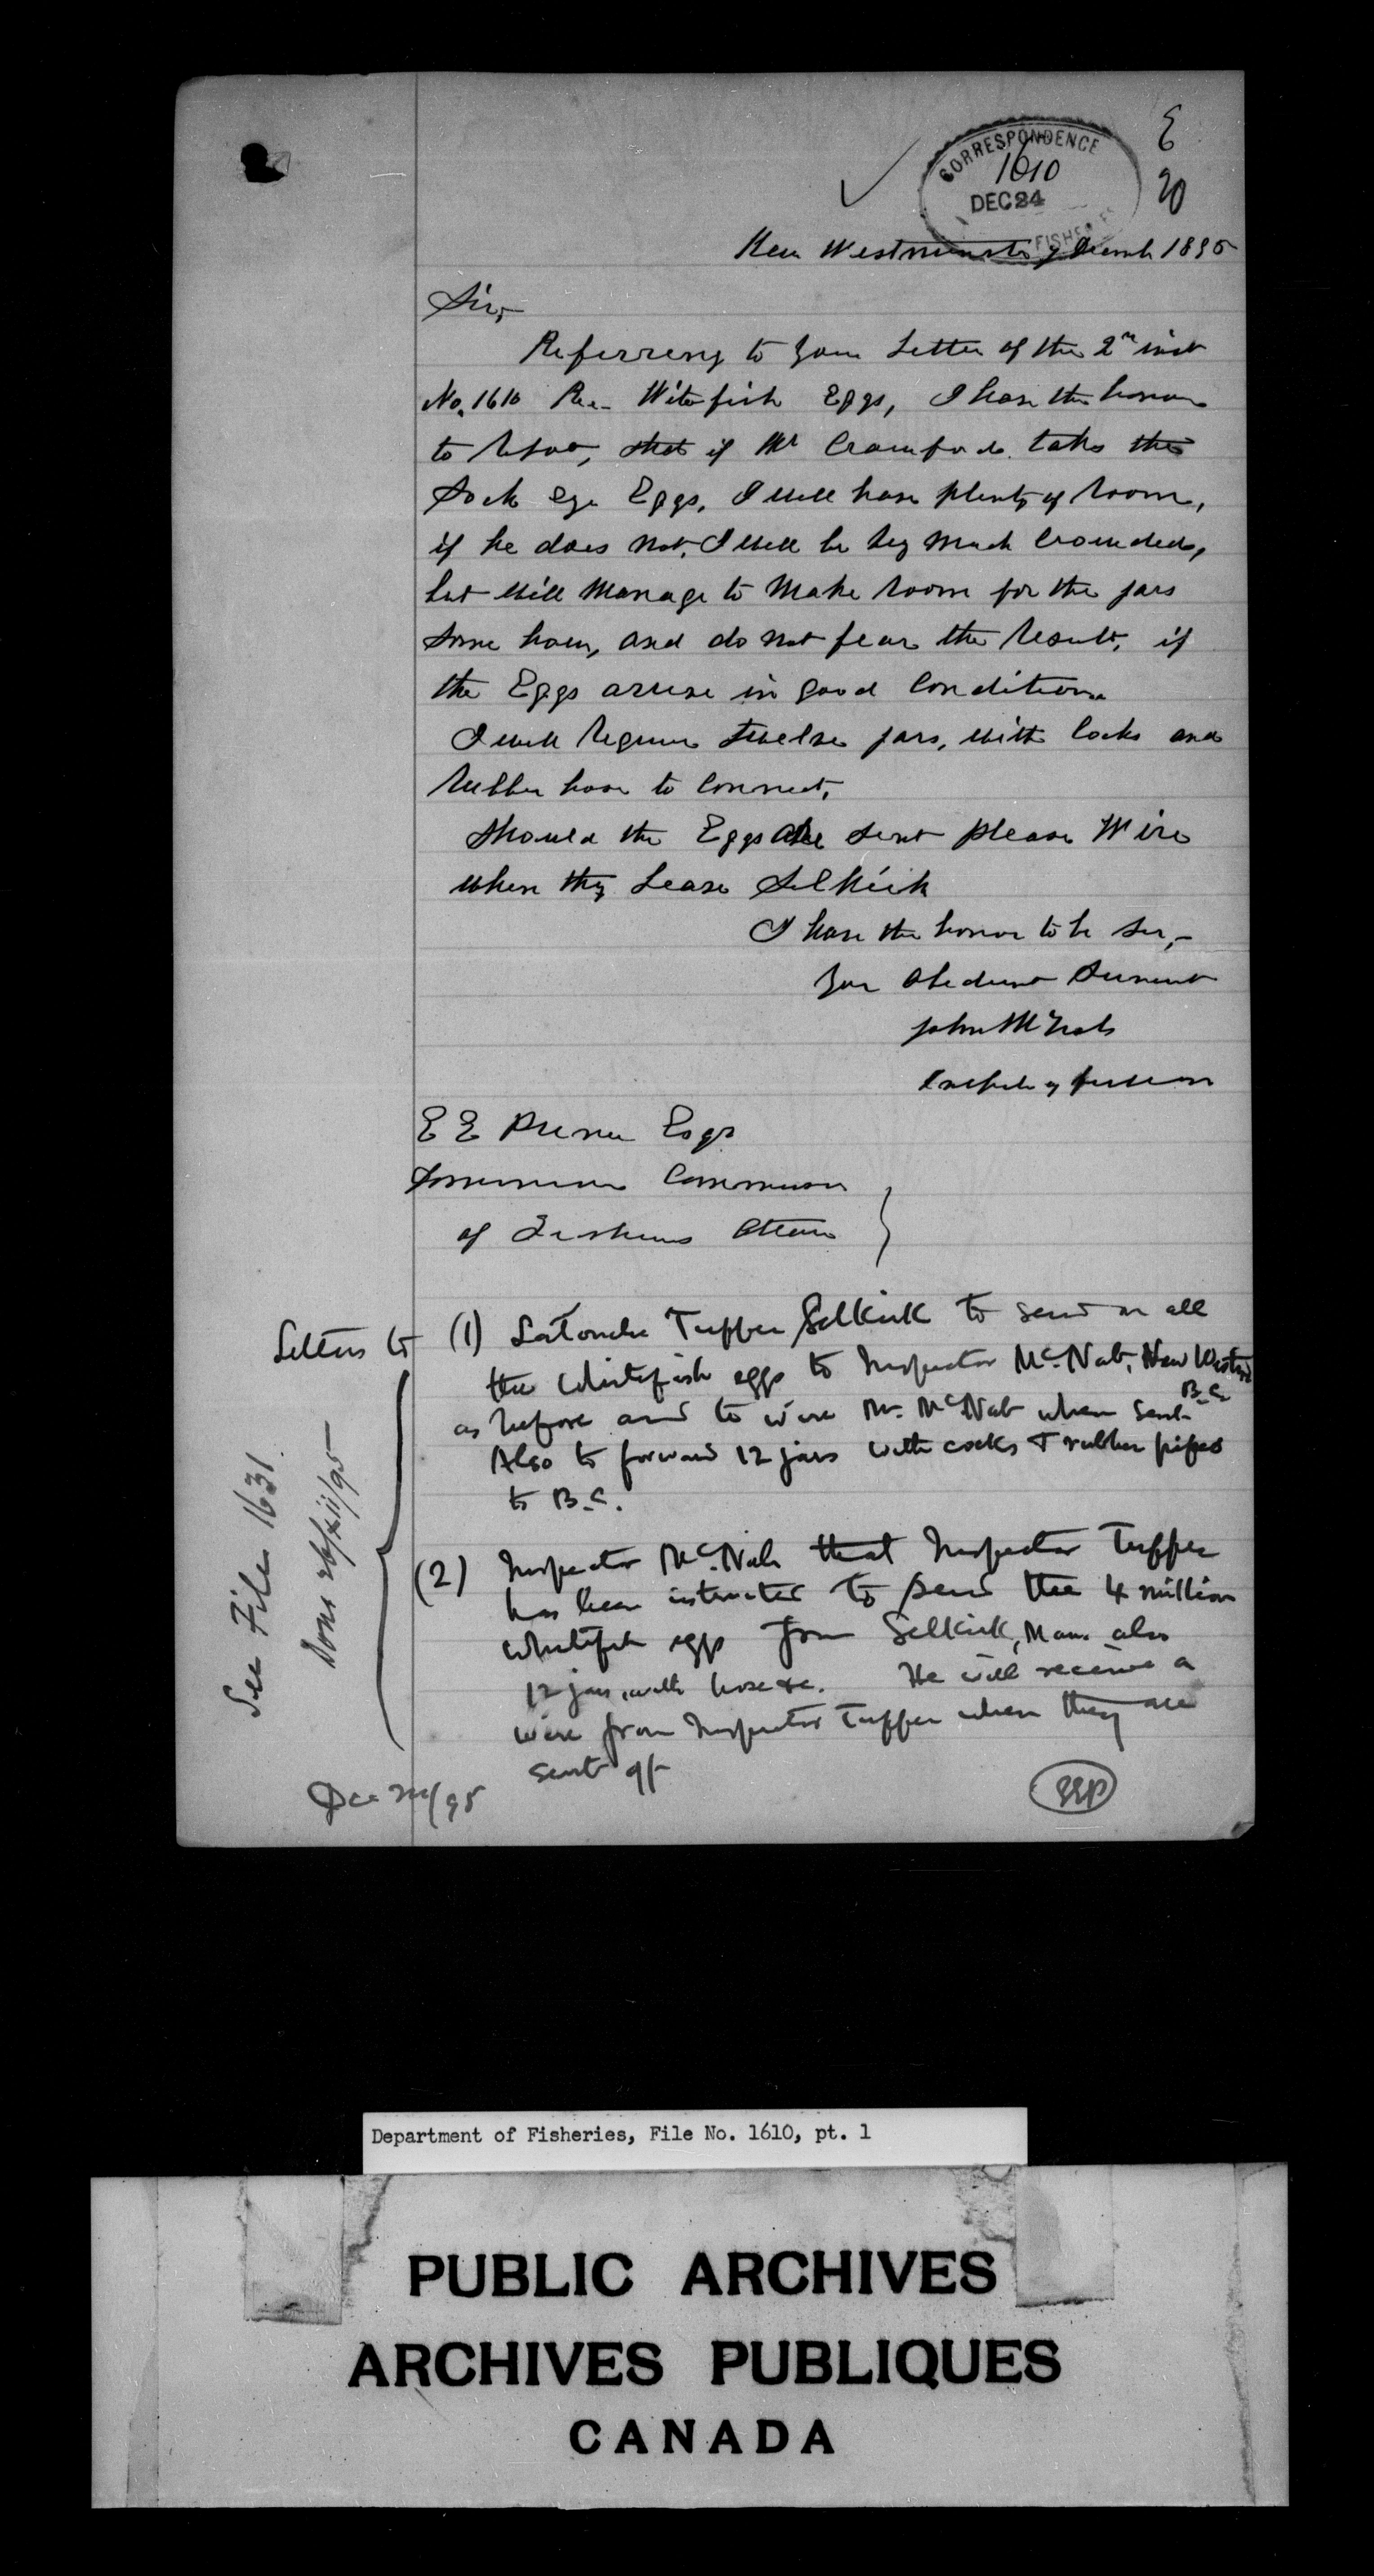 CORRESPONDENCE
1610
DEC 24
FISHERIES
E
20
New Westminster 9 Decemb 1895
Sir,
Referring to your Letter of the 2nd inst
No. 1610 Re. Witefish Eggs, I have the honour
to report, that if Mr Crawford takes the
Sock eye Eggs, I will have plenty of room,
if he does not, I will be very much crowded,
but will manage to make room for the jars
some how, and do not fear the result, if
the Eggs arrive in good condition
I will require twelve jars, with cocks and
rubber hose to connect,
Should the Eggs be sent please Wire
when they Leave Selkirk
I have the honor to be Sir,
Your Obedient Servant
John McNab
Inspector of Fisheries
E E Prince Esqr
Dominion Commissioner
of Fisheries Ottawa
Letters to (1) LaTouche Tupper Selkirk to send on all
the Whitefish eggs to Inspector McNab, New Westmr
B.C.
as before and to wire Mr. McNab when sent.
Also to forward 12 jars with cocks & rubber pipes
to B.C.
(2) Inspector McNab that Inspector Tupper
has been instructed to send the 4 million
Whitefish eggs from Selkirk, Man. also
12 jars, with hose &c. He will receive a
wire from Inspector Tupper when they are
sent off
See File 1631
Done 26/xii/95
Dec /95
EEP
Department of Fisheries, File No. 1610, pt. 1
PUBLIC ARCHIVES
ARCHIVES PUBLIQUES
CANADA